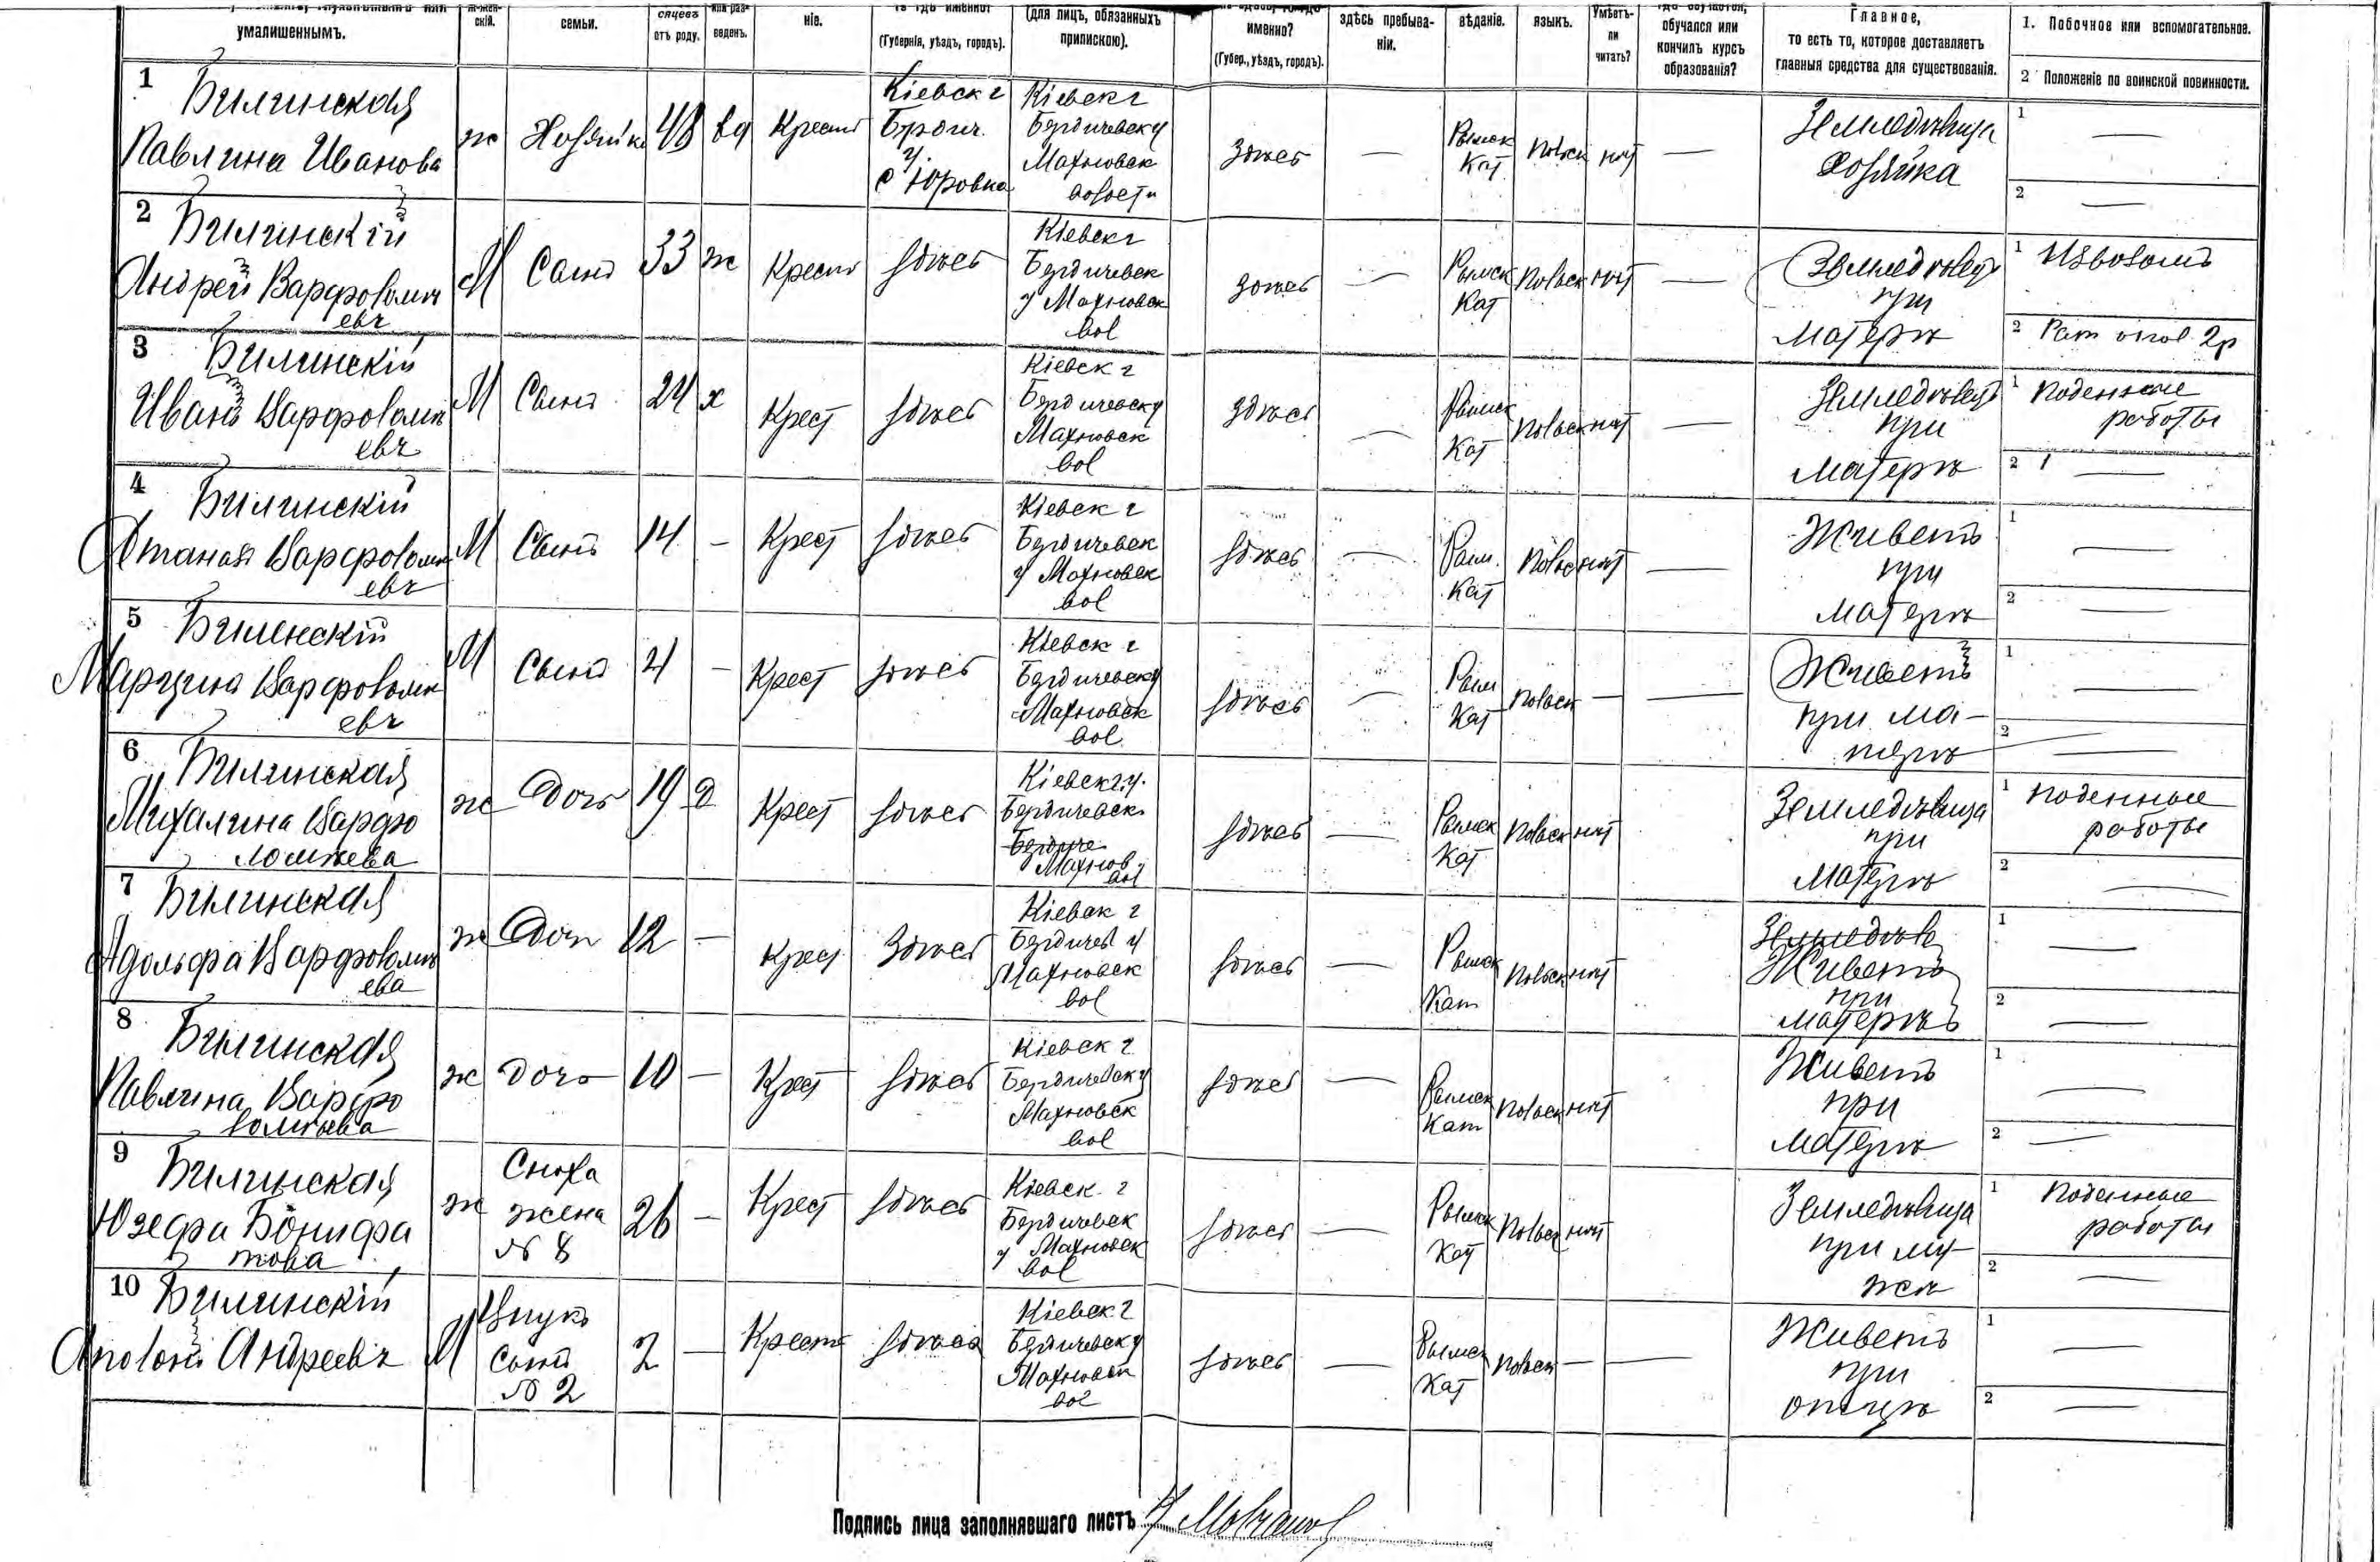 умалишеннымъ.
скій.
семьи.
сяцевъ
отъ роду.
или раз-
веденъ.
ніе.
(Губернія, уѣздъ, городъ).
(для лицъ, обязанныхъ
припискою).
именно?
(Губер., уѣздъ, городъ).
здѣсь пребыва-
ніи.
вѣданіе.
языкъ.
Умѣетъ-
ли
читать?
обучался или
кончилъ курсъ
образованія?
Главное,
то есть то, которое доставляетъ
главныя средства для существованія.
1. Побочное или вспомогательное.
2 Положеніе по воинской повинности.
1 Билинская
Павлина Иванова
ж
Хозяйка
48
вд
Крест
Кіевск г
Бердич.
у.
с Юровка
Кіевск г
Бердичевск у
Махновск
волости
здѣсь
—
Римск
Кат
польск
нѣт
—
Земледѣлица
хозяйка
1 —
2 —
2 Билинскій
Андрей Варфоломѣ
евъ
М
Сынъ
33
ж
Крест
здѣсь
Кіевск г
Бердичевск
у Махновск
вол
здѣсь
—
Римск
Кат
польск
нѣт
—
Земледѣлец
при
матерѣ
1 Извозомъ
2 Рат опол 2р
3 Билинскій
Иванъ Варфоломѣ
евъ
М
Сынъ
24
х
Крест
здѣсь
Кіевск г
Бердичевск у
Махновск
вол
здѣсь
—
Римск
Кат
польск
нѣт
—
Земледѣлец
при
матерѣ
1 Поденные
работы
2 —
4 Билинскій
Варфоломѣ
евъ
М
Сынъ
14
—
Крест
здѣсь
Кіевск г
Бердичевск
у Махновск
вол
здѣсь
—
Рим.
Кат
польс
нѣт
—
Живетъ
при
матерѣ
1 —
2 —
5 Биленскій
Марцинъ Варфоломѣ
евъ
М
Сынъ
—
Крест
здѣсь
Кіевск г
Бердичевск у
Махновск
вол.
здѣсь
—
Рим
Кат
польск
—
—
Живетъ
при ма-
терѣ
1 —
2 —
6 Билинская
Михалина Варфо
ломѣева
ж
Дочь
19
д
Крест
здѣсь
Кіевск г.
Бердичевск
Бердиче
Махнов
вол
здѣсь
—
Римск
Кат
польск
нѣт
Земледѣлица
при
матерѣ
1 поденные
работы
2 —
7 Билинская
Адольфа Варфоломѣ
ева
ж
Дочь
12
—
Крест
здѣсь
Кіевск г
Бердичев у
Махновск
вол
здѣсь
—
Римск
Кат
польск
нѣт
Земледѣл
Живетъ
при
матерѣ
1 —
2 —
8 Билинская
Павлина Варфо
ломѣева
ж
дочь
10
—
Крест
здѣсь
Кіевск г
Бердичевск у
Махновск
вол
здѣсь
—
Римск
Кат
польск
нѣт
Живетъ
при
матерѣ
1 —
2 —
9 Билинская
Юзефа Бонифа
това
ж
Сноха
жена
№ 8
26
—
Крест
здѣсь
Кіевск г
Бердичевск
у Махновск
вол
здѣсь
—
Римск
Кат
польск
нѣт
Земледѣлица
при му-
жѣ
1 Поденные
работы
2 —
10 Билинскій
Аполонъ Андреевъ
М
Внукъ
сынъ
№ 2
2
—
Крест
здѣсь
Кіевск г
Бердичевск у
Махновск
вол
здѣсь
—
Римск
Кат
польск
—
—
Живетъ
при
отцѣ
1 —
2 —
Подпись лица заполнявшаго листъ